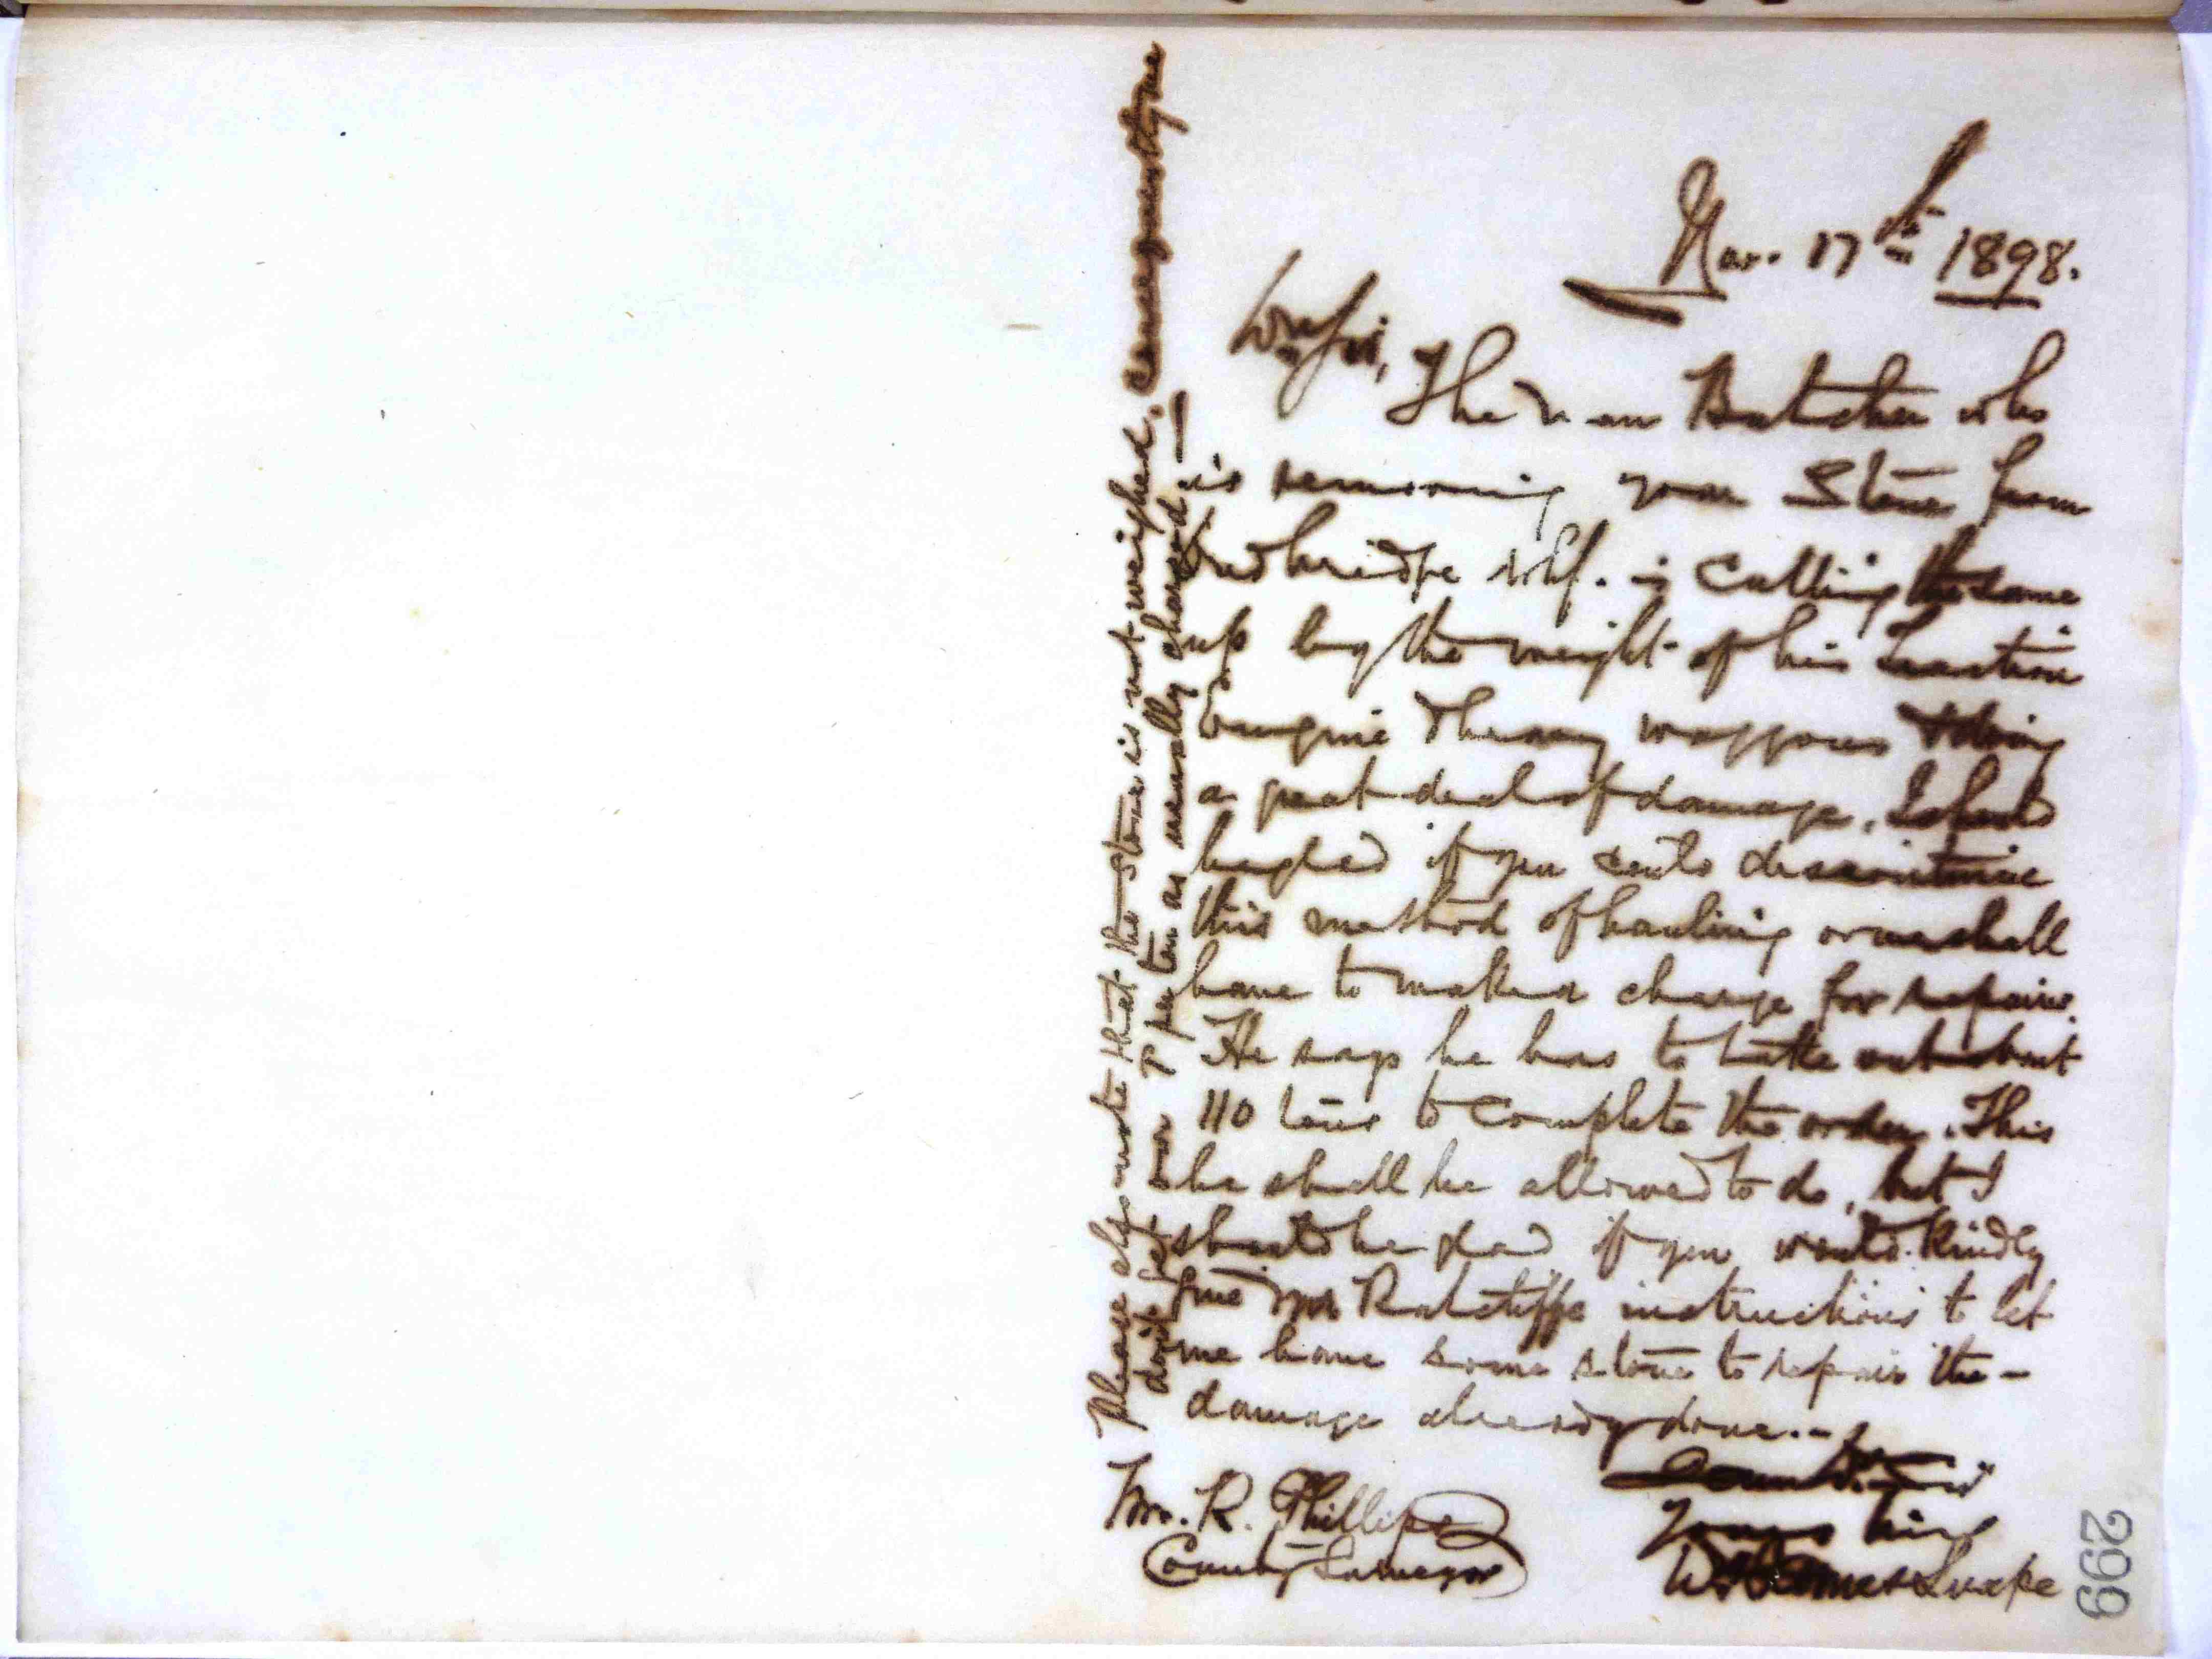 Mar. 17th 1898.
Dear Sir,
The man Butcher who
is removing your Stone from
Wharf. is Cutting the same
up by the weight of his traction
Engine & heavy waggons & doing
a great deal of damage. I should
be glad if you could discontinue
this method of hauling or we shall
have to make a charge for repairs.
He says he has to take out about
110 tons to Complete the order. This
he shall be allowed to do, but I
should be glad if you would kindly
give Mr Ratcliffe instructions to let
me have some stone to repair the -
damage already done. -
Yours truly
Mr. R. Phillips
County Surveyor
Please also note that the stone is not weighed, consequently one
per ton as usually charged
299